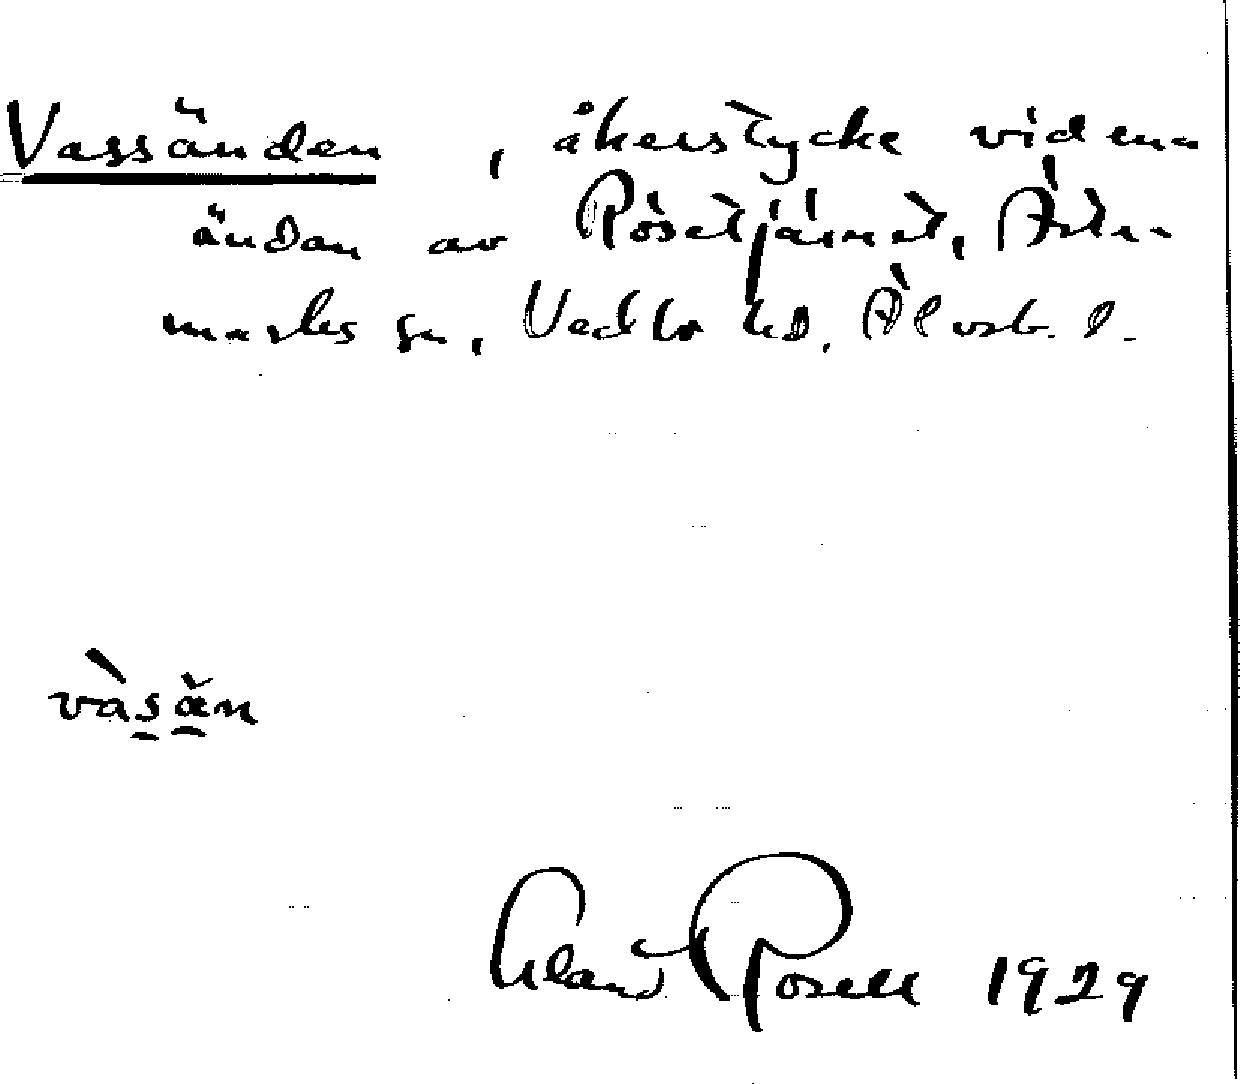 Vassänden, åkerstycke vid ena
ändan av Rösetjärnet, Ärte-
marks sn, Vedbo hd. Älvsb. l.
vàsän
Erland Rosell 1929